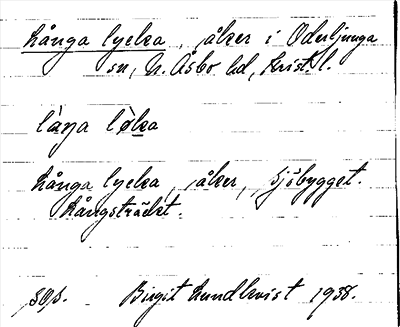 Långa lycka, åker i Oderljunga
sn, N. Åsbo hd, Krist. l.
låŋa løka
Långa lycka, åker, Sjöbygget.
Långsträckt.
Birgit Lundkvist 1938.